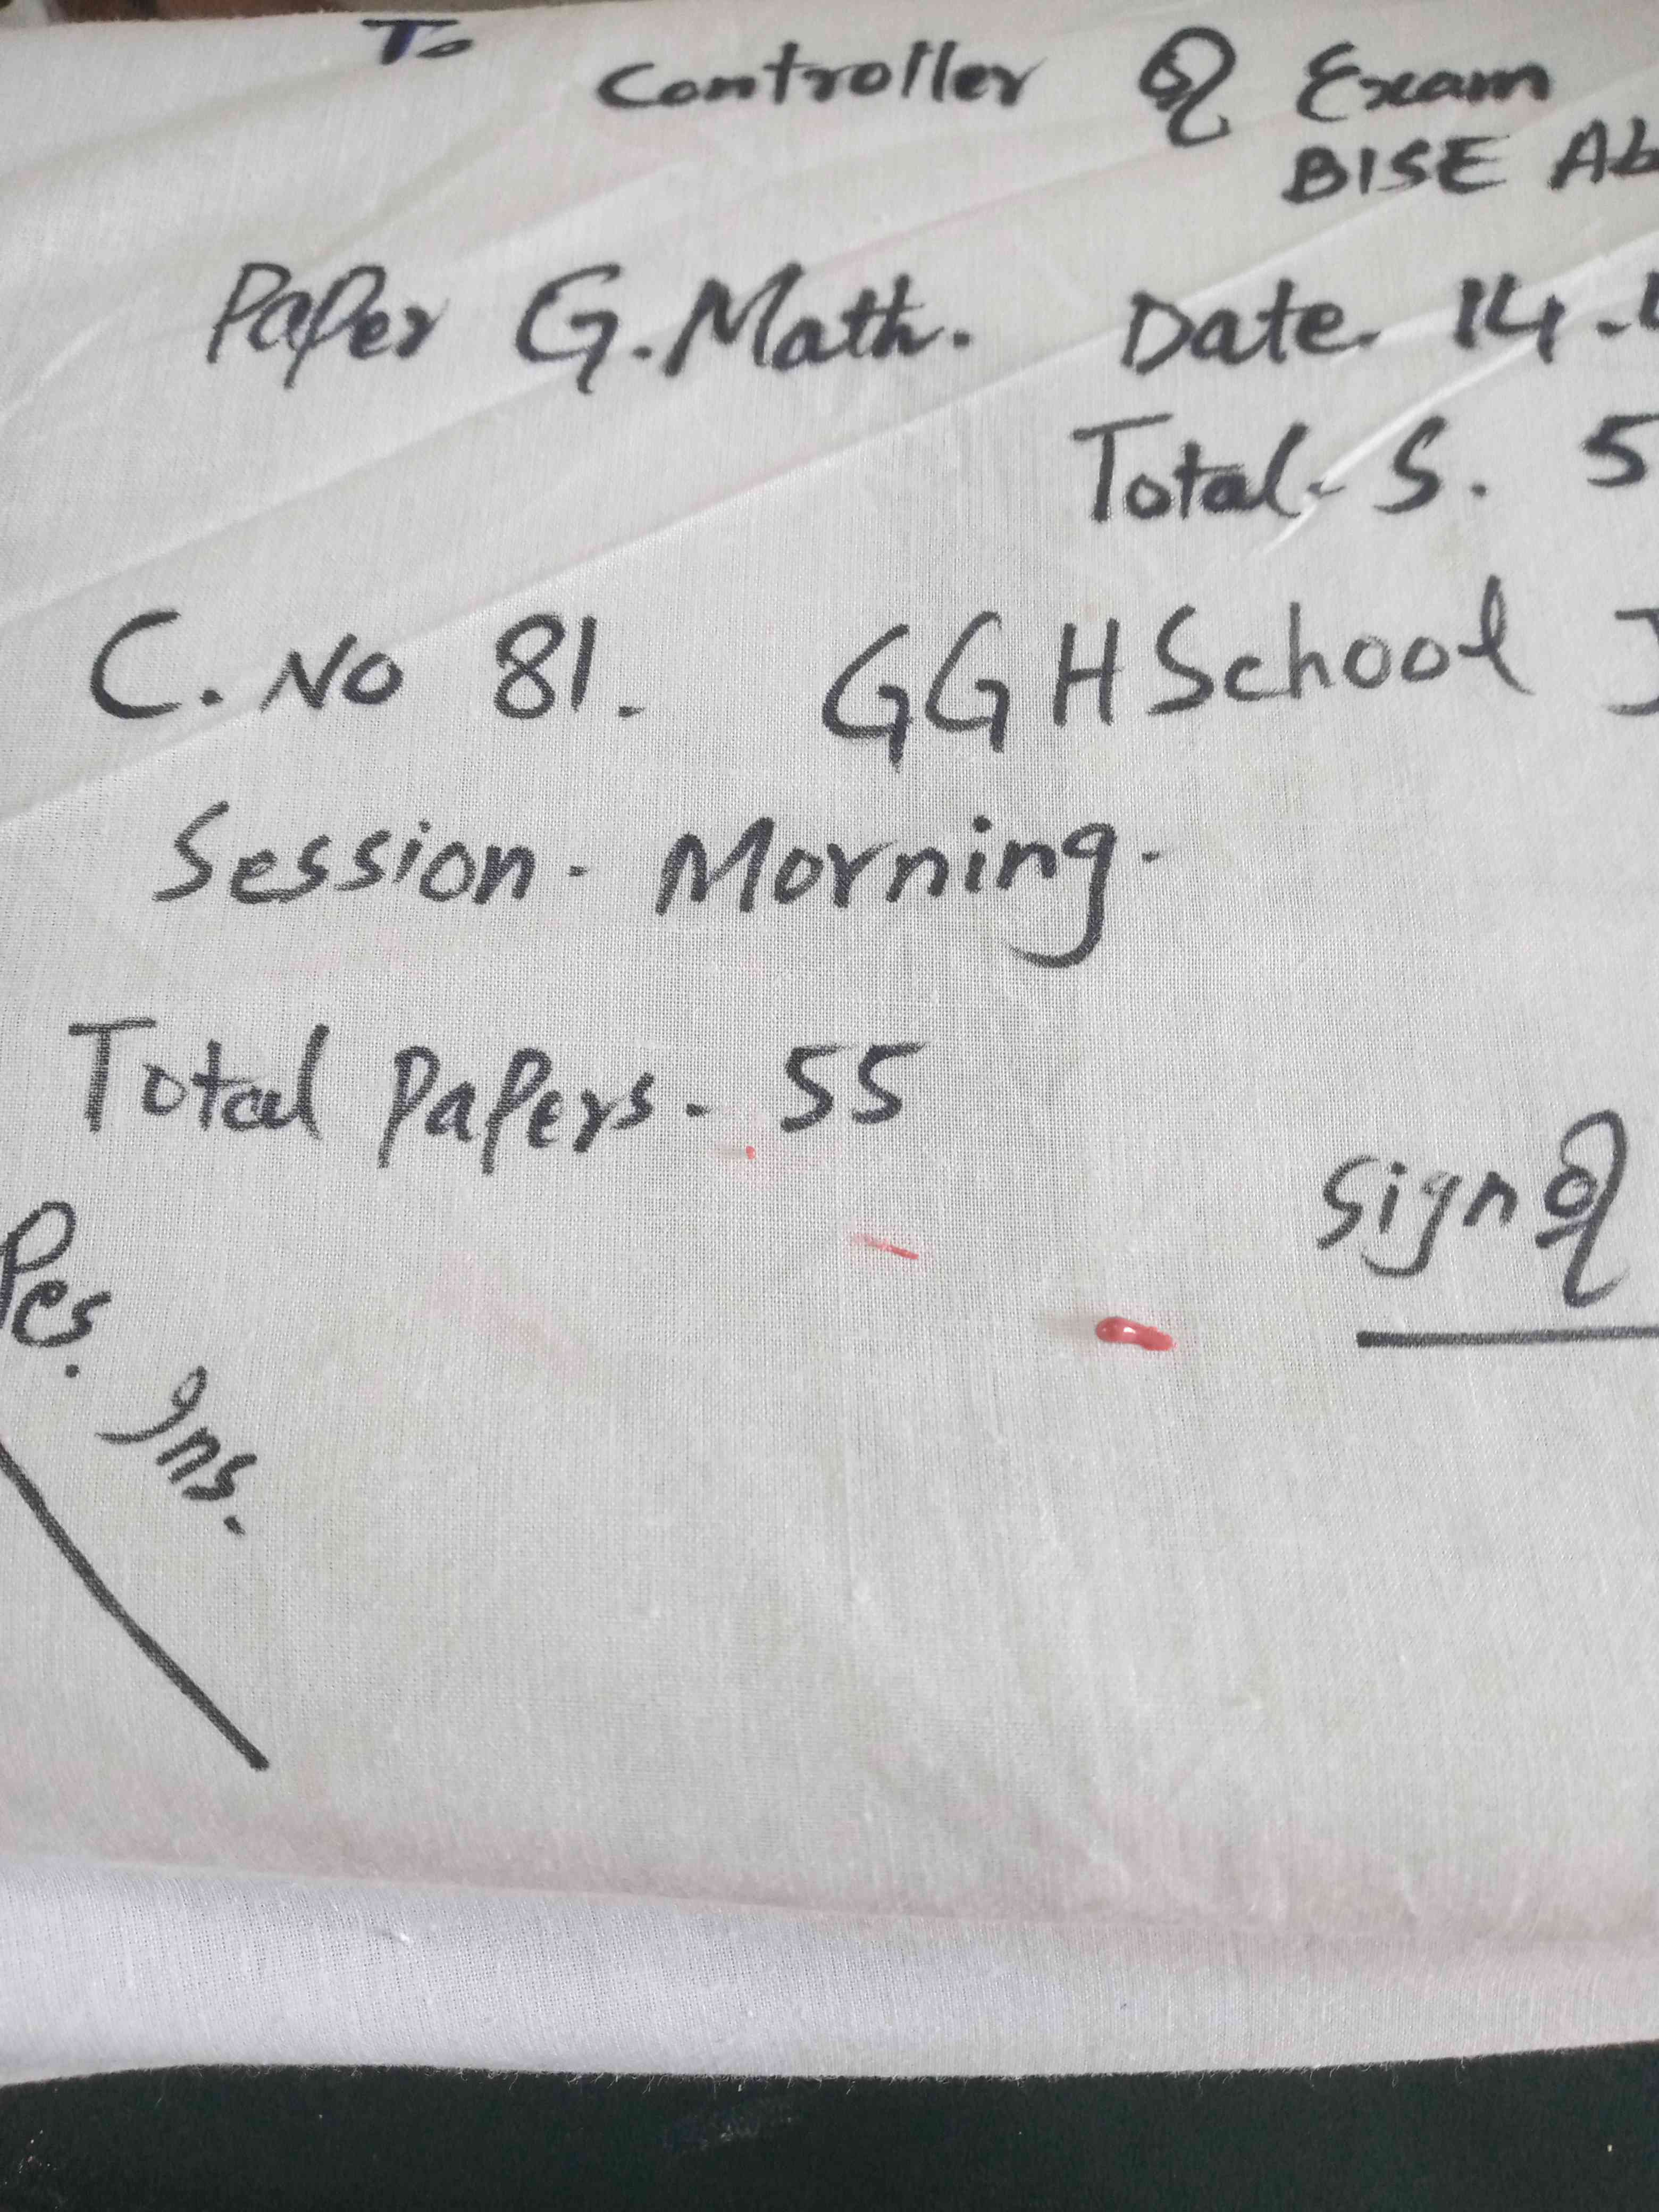 To
Controller of Exam
BISE Ab
Paper G.Math. Date. 14.
Total. S. 5
C. No 81. GGHSchool
Session. Morning.
Total Papers. 55
Sign of
Res. Ins.